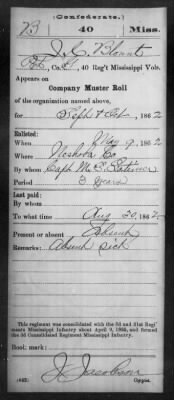 (Confederate.)
B 40 Miss.
J. L. Blount
Pvt., Co. G, 40 Reg't Mississippi Vols.
Appears on
Company Muster Roll
of the organization named above,
for Sept & Oct, 1862
Enlisted:
When May 9, 1862
Where Neshoba Co
By whom Capt M. E.
Period 3 years
Last paid:
By whom
To what time Aug 20, 1862
Present or absent Absent
Remarks: Absent sick
This regiment was consolidated with the 3d and 31st Regi'
ments Mississippi Infantry about April 9, 1865, and formed
the 3d Consolidated Regiment Mississippi Infantry.
Book mark:
J Jacobson
(642) Copyist.